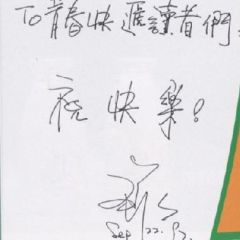 TO 青春快遞讀者們：
祝快樂！
Sep 22.